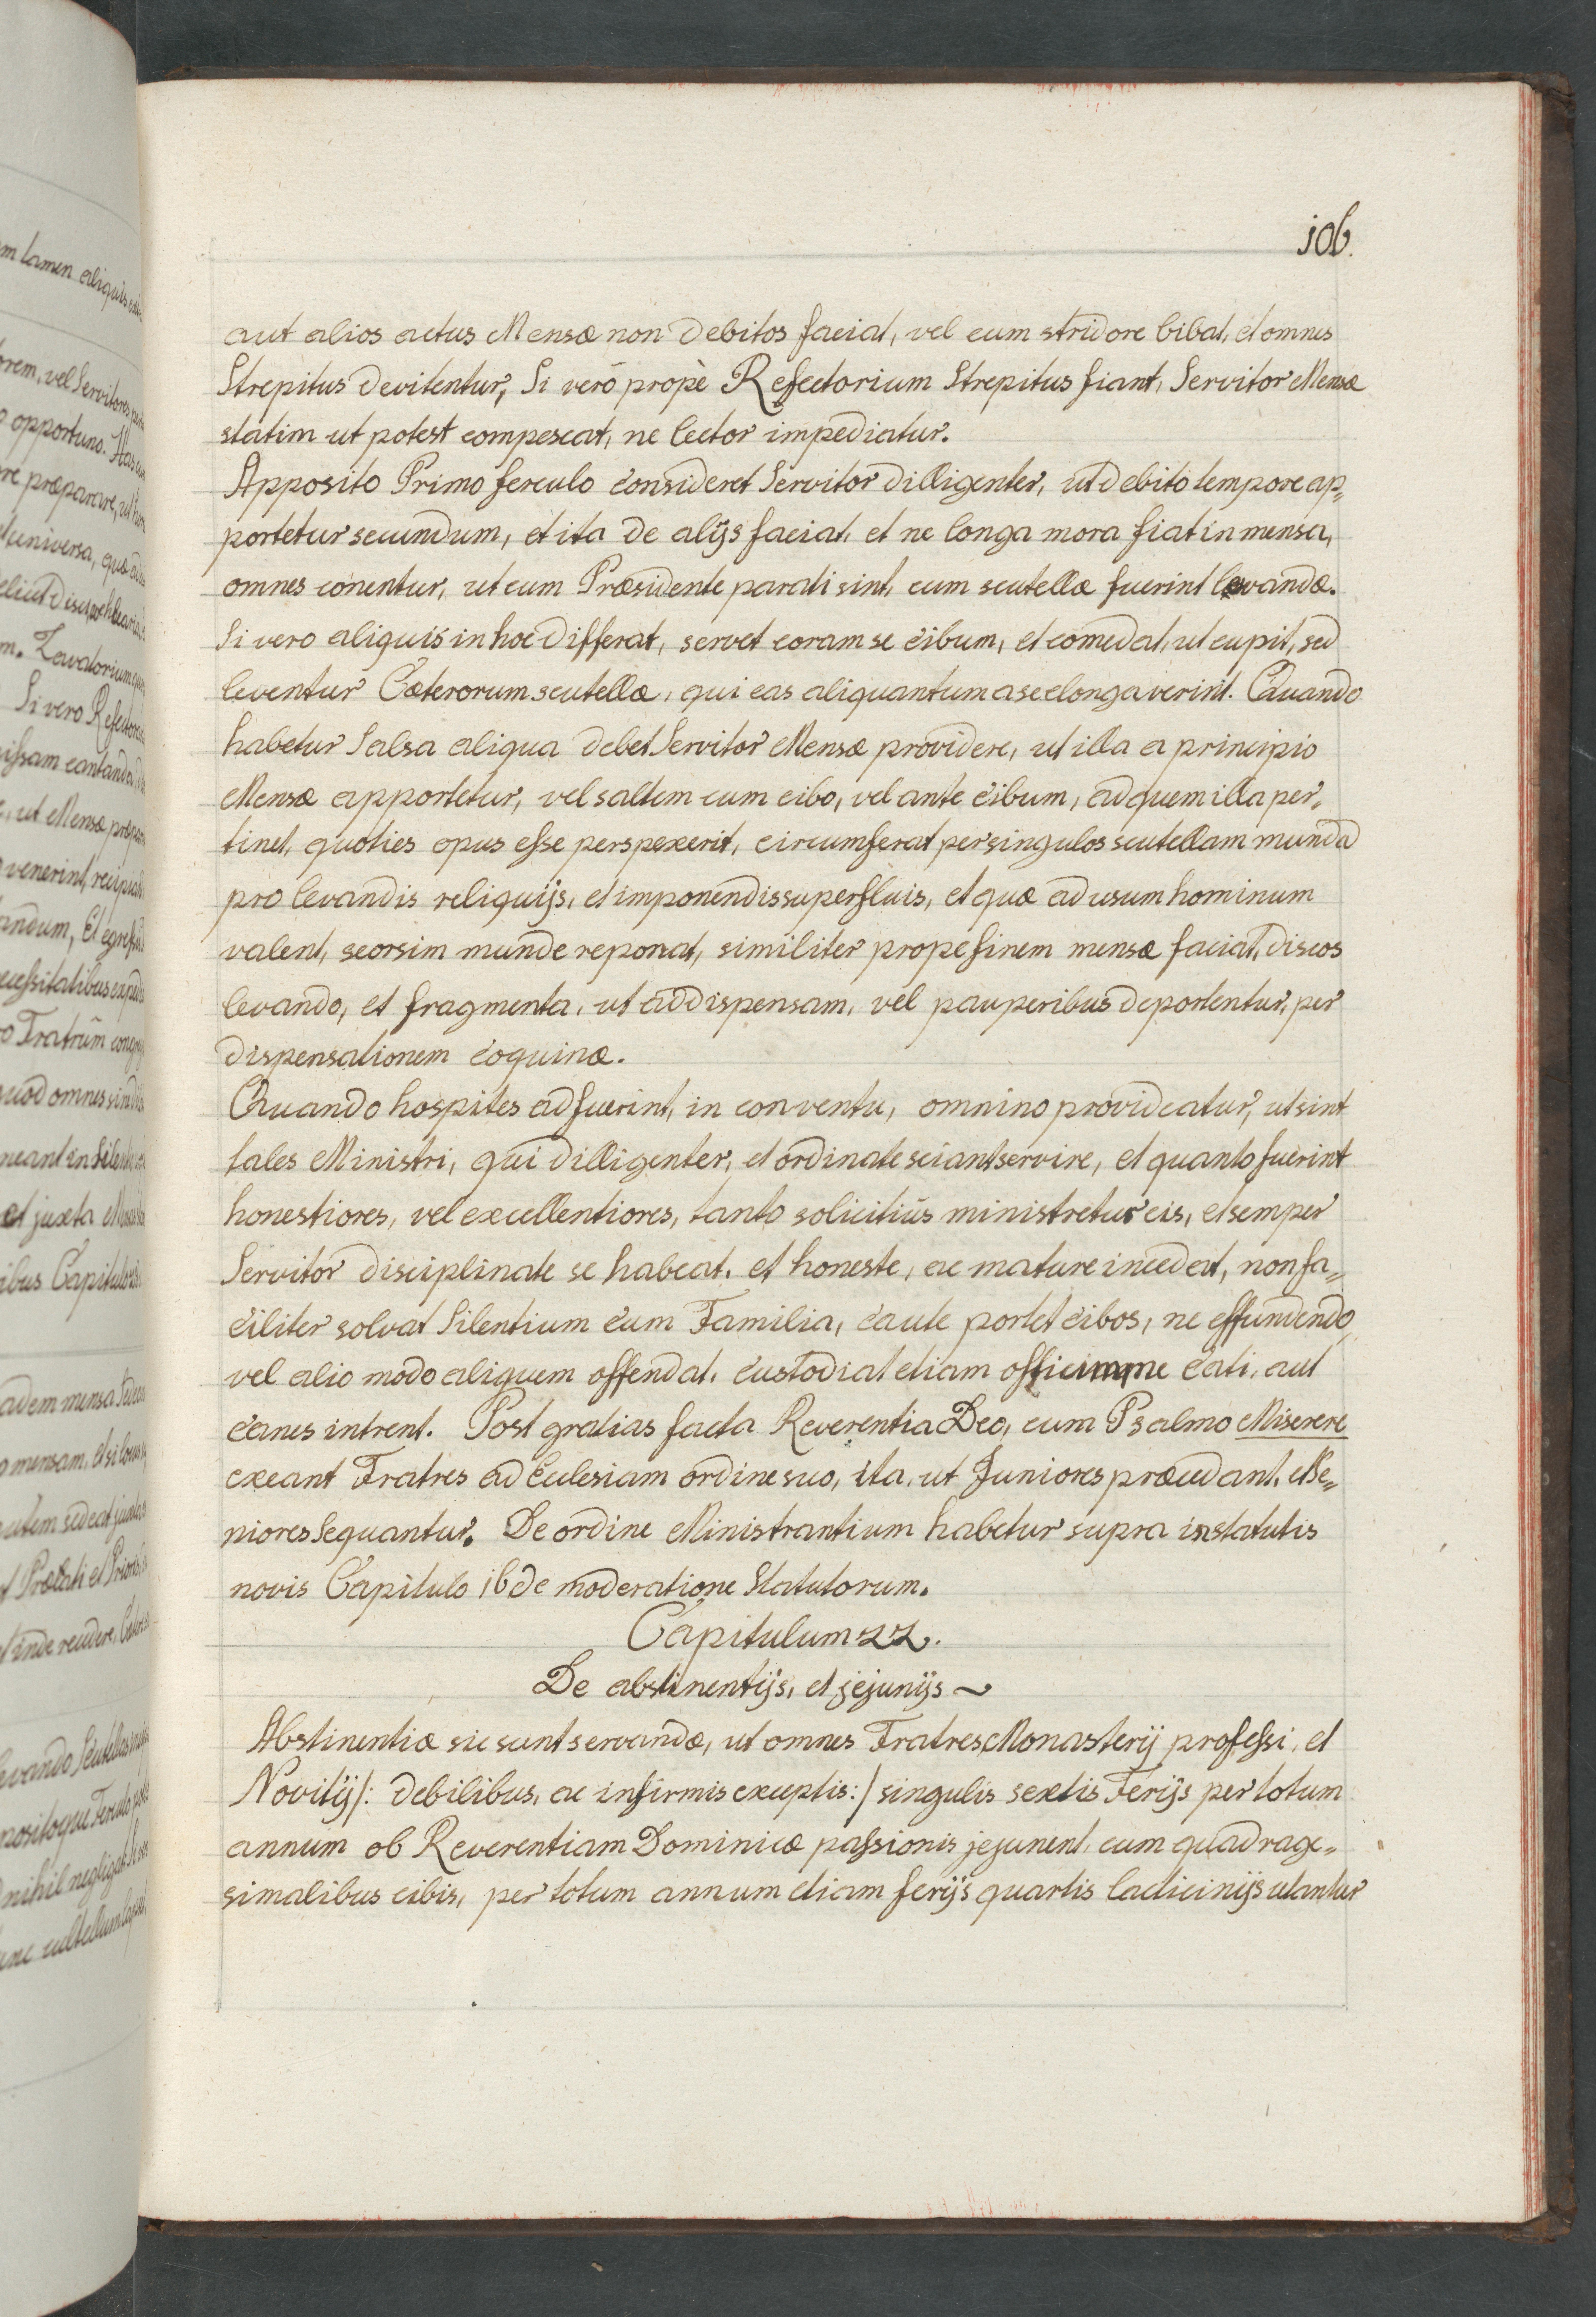 106.
aut alios actus Mensæ non debitos faciat, vel cum stridore bibat, et omnes
Strepitus devitentur, Si verò propè Refectorium Strepitus fiant, Servitor Mensæ
statim ut potest compescat, ne lector impediatur.
Apposito Primo ferculo consideret Servitor dilligenter, ut debito tempore ap„
portetur secundum, et ita de alijs faciat, et ne longa mora fiat in mensa,
omnes conentur, ut cum Præsidente parati sint, cum scutellæ fuerint levandæ.
Si vero aliquis in hoc differat, servet coram se cibum, et comedat, ut cupit, sed
leventur Cæterorum scutellæ, qui eas aliquantum a se elongaverint. Quando
habetur Salsa aliqua debet Servitor Mensæ providere, ut illa a principio
Mensæ apportetur, vel saltem cum cibo, vel ante cibum, ad quem illa per„
tinet, quoties opus esse perspexerit, circumferat per singulos scutellam munda
pro levandis reliquijs, et imponendis superfluis, et quæ ad usum hominum
valent, seorsim munde reponat, similiter prope finem mensæ faciat, discos
levando, et fragmenta, ut ad dispensam, vel pauperibus deportentur, per
dispensationem coquinæ.
Quando hospites adfuerint, in conventu, omnino provideatur, ut sint
tales Ministri, qui dilligenter, et ordinate sciant servire, et quanto fuerint
honestiores, vel excellentiores, tanto solicitiùs ministretur eis, et semper
Servitor disciplinate se habeat, et honeste, ac mature incedat, non fa„
ciliter solvat Silentium cum Familia, caute portet cibos, ne effundendo,
vel alio modo aliquem offendat, custodiat etiam ne cati, aut
canes intrent. Post gratias facta Reverentia Deo, cum Psalmo Miserere
exeant Fratres ad Eclesiam ordine suo, ita, ut Juniores præcedant, et Se„
niores Sequantur. De ordine Ministrantium habetur supra in statutis
novis Capitulo 16 de moderatione Statutorum.
Capitulum 22.
De abstinentijs, et jejunijs ~
Abstinentiæ sic sunt servandæ, ut omnes Fratres Monasterij professi, et
Novitij /: debilibus, ac infirmis exceptis :/ singulis sextis Ferijs per totum
annum ob Reverentiam Dominicæ passionis jejunent, cum quadrage„
simalibus cibis, per totum annum etiam ferijs quartis lacticinijs utantur